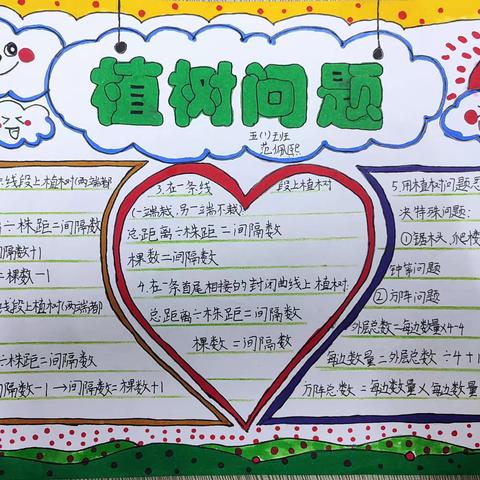 植树问题
五(1)班
范佩熙
线段上植树(两端都
÷株距=间隔数
间隔数+1
=棵数-1
线段上植树(两端都
÷株距=间隔数
间隔数-1→间隔数=棵数+1
3.在一条线段上植树
(一端栽,另一端不栽)
总距离÷株距=间隔数
棵数=间隔数
4.在一条首尾相接的封闭曲线上植树.
总距离÷株距=间隔数
棵数=间隔数
5.用植树问题思
决特殊问题:
①锯木头,爬楼
钟等问题
②方阵问题
外层总数=每边数量×4-4
每边数量=外层总数÷4+1
方阵总数=每边数量×每边数量